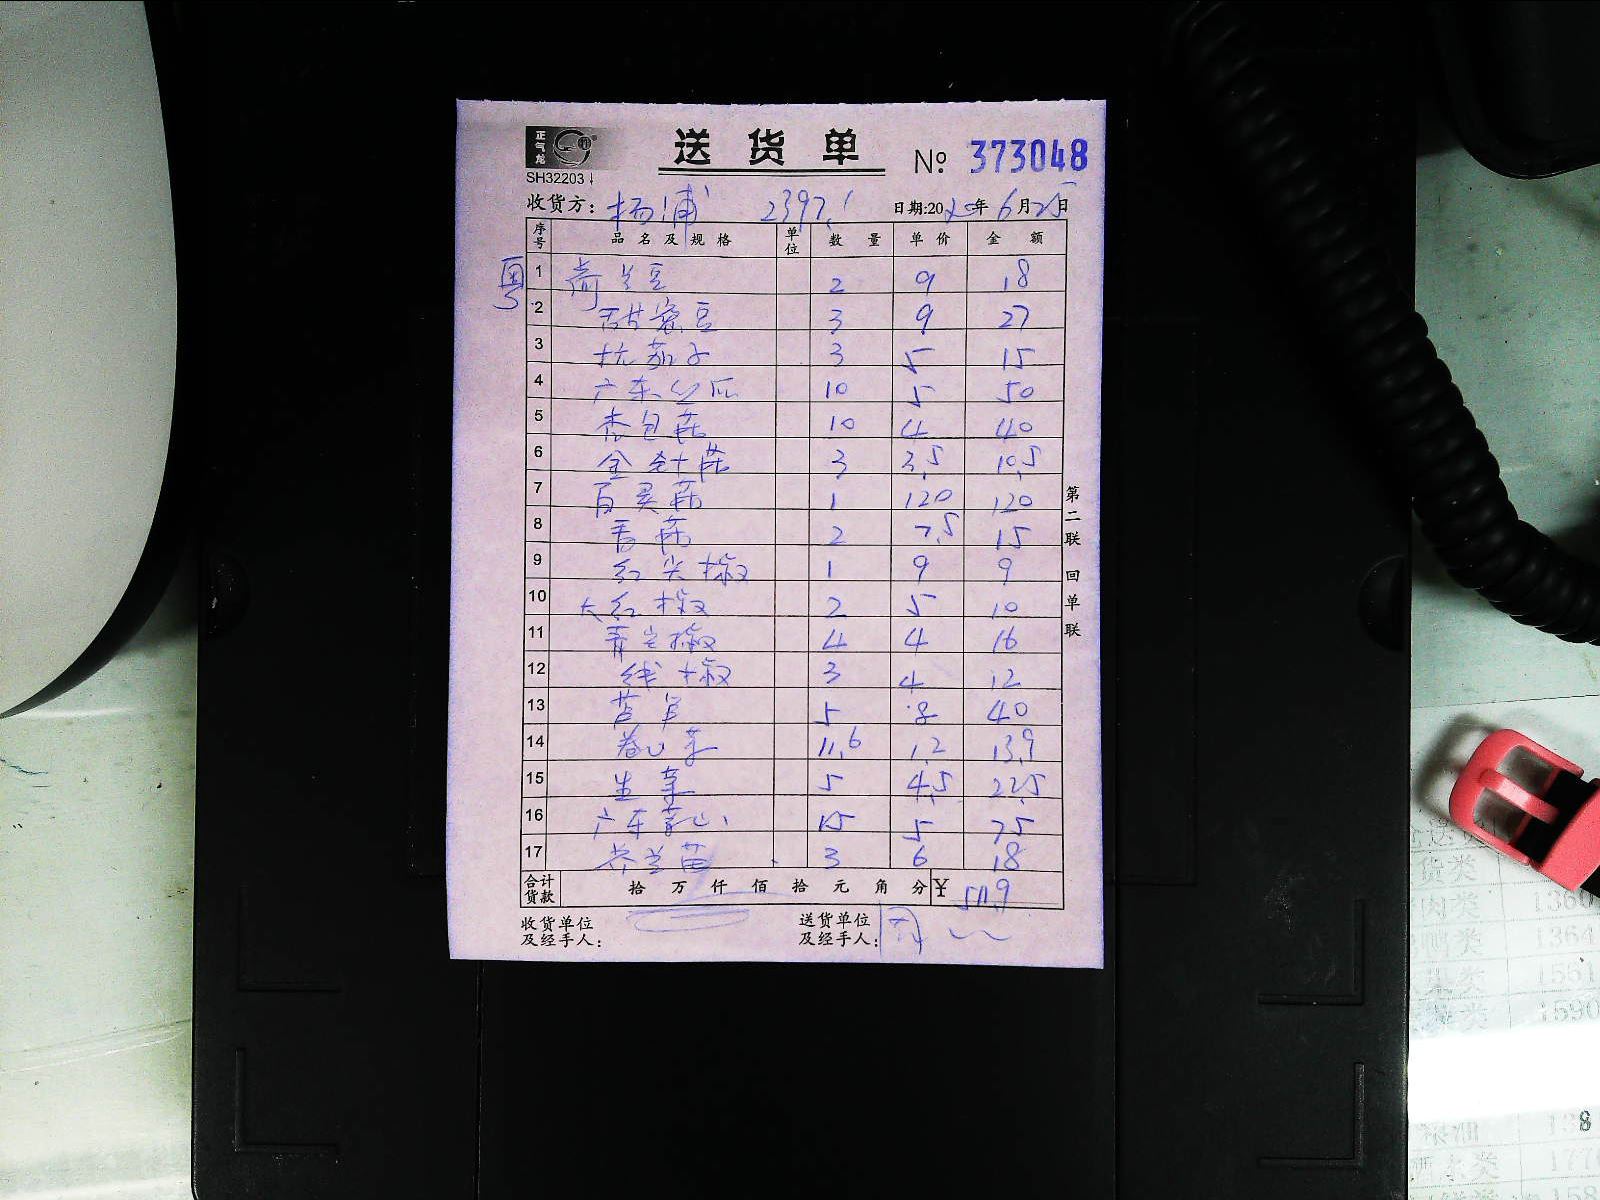 正气龙
SH32203
送货单
No 373048
收货方: 杨浦 2397.1 日期:2020年6月25日
序号 品名及规格 单位 数量 单价 金额
粤
1 荷兰豆 2 9 18
2 甜蜜豆 3 9 27
3 杭茄子 3 5 15
4 广东丝瓜 10 5 50
5 杏包菇 10 4 40
6 金针菇 3.5 10.5 3
7 百灵菇 1 120 120
8 香菇 2 7.5 15
9 红尖椒 1 9 9
10 大红椒 2 5 10
11 青尖椒 4 4 16
12 线椒 3 4 12
13 芦笋 5 8 40
14 卷心菜 11.6 1.2 13.9
15 生菜 5 4.5 22.5
16 广东菜心 15 5 75
17 芥兰苗 3 6 18
合计货款 拾万仟佰拾元角分 ¥ 511.9
收货单位及经手人:
送货单位及经手人: 周
第二联 回单联
货类
肉类 1360
鸭类 1364
果类 1551
类 1590
8